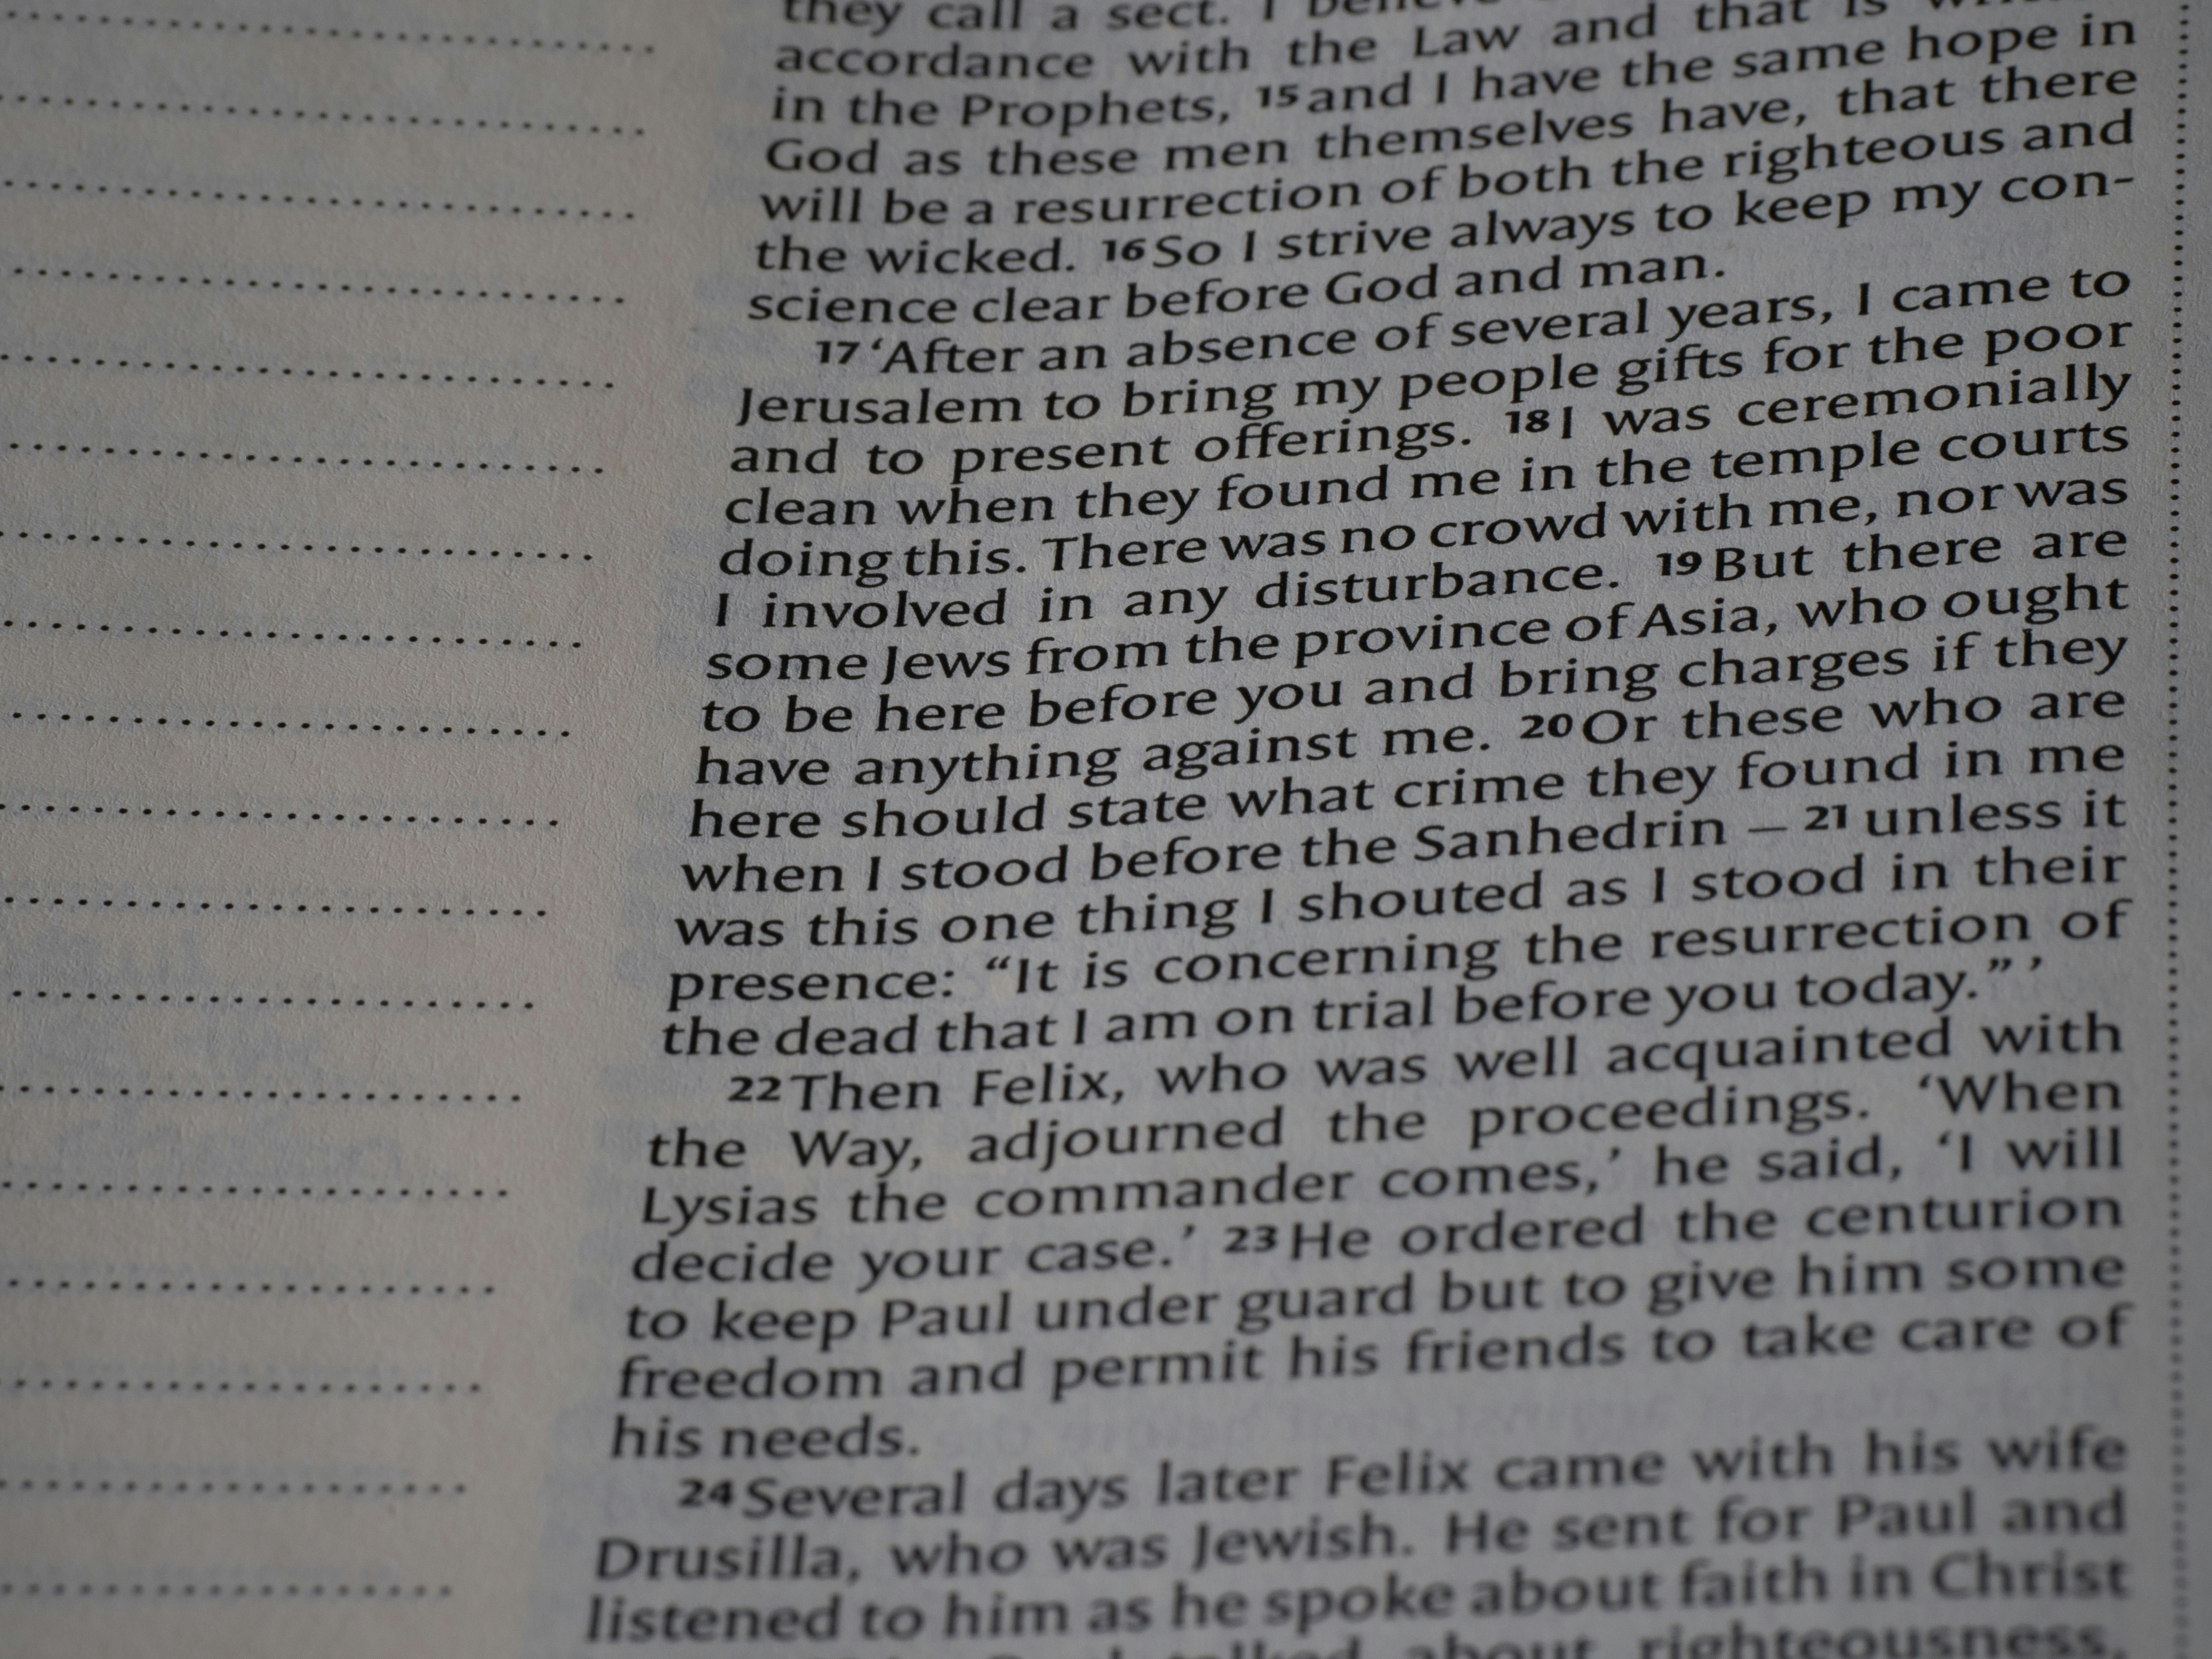 they call a sect. I
accordance with the Law and that is
in the Prophets, 15 and I have the same hope in
God as these men themselves have, that there
will be a resurrection of both the righteous and
the wicked. 16 So I strive always to keep my con-
science clear before God and man.
17 ‘After an absence of several years, I came to
Jerusalem to bring my people gifts for the poor
and to present offerings. 18 I was ceremonially
clean when they found me in the temple courts
doing this. There was no crowd with me, nor was
I involved in any disturbance. 19 But there are
some Jews from the province of Asia, who ought
to be here before you and bring charges if they
have anything against me. 20 Or these who are
here should state what crime they found in me
when I stood before the Sanhedrin – 21 unless it
was this one thing I shouted as I stood in their
presence: “It is concerning the resurrection of
the dead that I am on trial before you today.” ’
22 Then Felix, who was well acquainted with
the Way, adjourned the proceedings. ‘When
Lysias the commander comes,’ he said, ‘I will
decide your case.’ 23 He ordered the centurion
to keep Paul under guard but to give him some
freedom and permit his friends to take care of
his needs.
24 Several days later Felix came with his wife
Drusilla, who was Jewish. He sent for Paul and
listened to him as he spoke about faith in Christ
talked about righteousness,